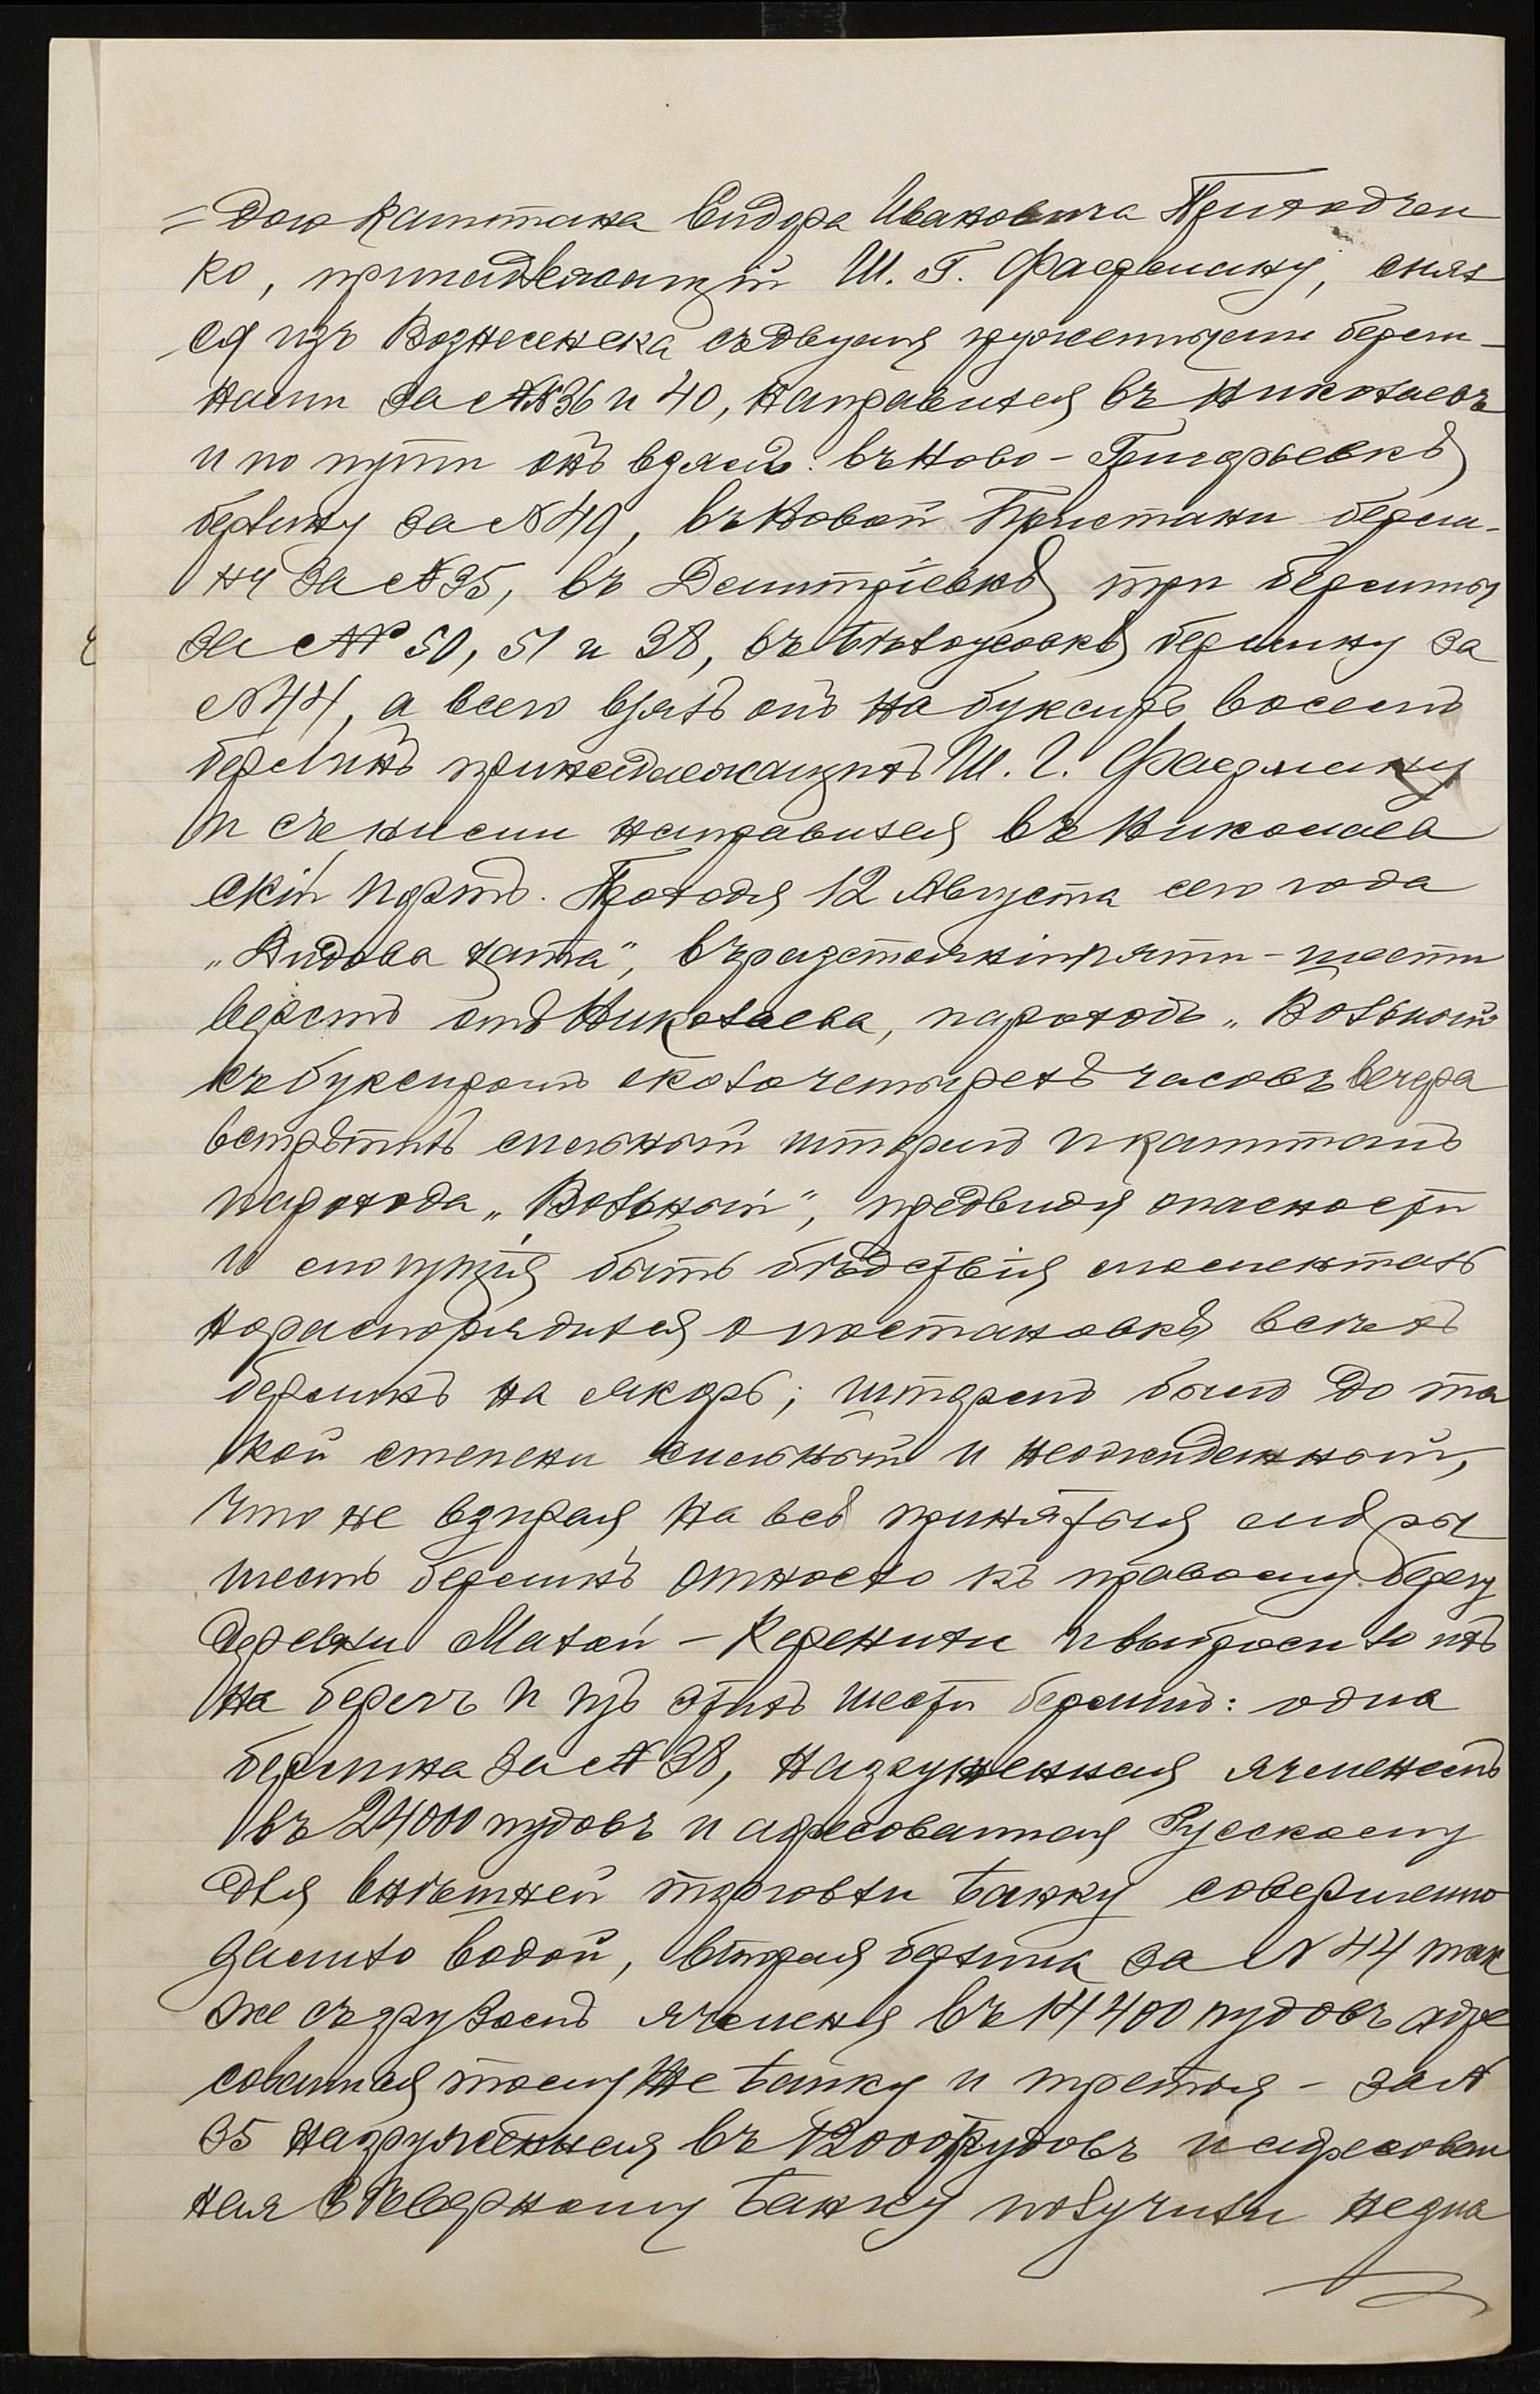 =дою капитана Сидора Ивановича Приходчен
ко, принадлежащій Ш. Г. Фаерману, снял
ся изъ Вознесенска съ двумя гружеными берли-
нами за №№ 36 и 40, направился въ Николаевъ
и по пути онъ взялъ: въ Ново-Григорьевкѣ
берлину за № 49, въ Новой Пристани берли-
ну за № 35, въ Дмитріевкѣ три берлины
за №№ 50, 51 и 38, въ Бѣлоусовкѣ берлину за
№ 44, а всего взялъ онъ на буксиръ восемь
берлинъ принадлежащихъ Ш. Г. Фаерману
и съ ними направился въ Николаев
скій портъ. Проходя 12 Августа сего года
„Дидова хата", въ разстояніи пяти-шести
верстъ отъ Николаева, пароходъ „Вольный"
съ буксиромъ около четырехъ часовъ вечера
встрѣтилъ сильный штормъ и капитанъ
парохода „Вольный", предвидя опасности
и могущія быть бѣдствія моменталь
но распорядился о постановкѣ всѣхъ
берлинъ на якорь; штормъ былъ до та
кой степени сильный и неожиданный,
что не взирая на всѣ принятыя мѣры
шесть берлинъ отнесло къ правому берегу
деревни Малой-Корениги и выбросило ихъ
на берегъ и изъ этихъ шести берлинъ: одна
берлина за № 38, нагруженная ячменемъ
въ 24000 пудовъ и адресованная Русскому
для внѣшней торговли банку совершенно
залило водой, вторая берлина за № 44 так
же съ грузомъ ячменя въ 14400 пудовъ адре
сованная тому же банку и третья - за №
35 нагруженная въ 12000 пудовъ и адресован
ная Сѣверному банку получили незна